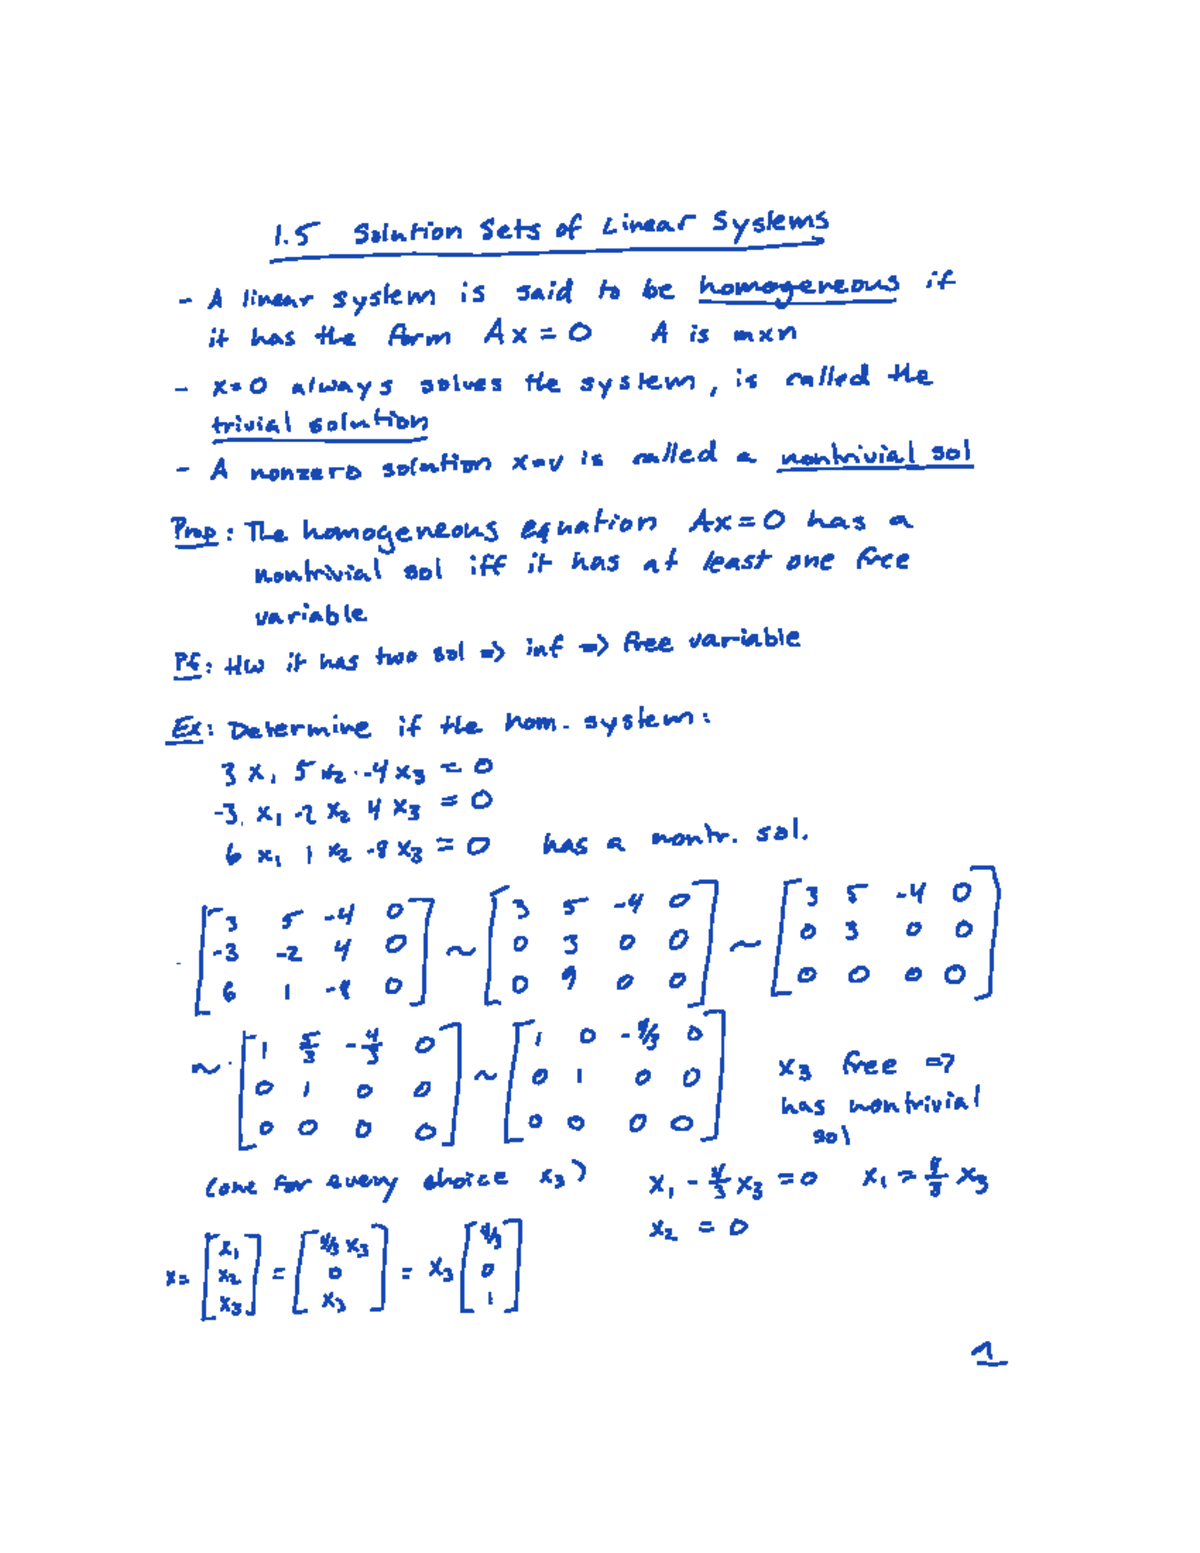 1.5 Solution Sets of Linear Systems
- A linear system is said to be homogeneous if
it has the form Ax = 0 A is mxn
- x=0 always solves the system, is called the
trivial solution
- A nonzero solution x=v is called a nontrivial sol
Prop: The homogeneous equation Ax=0 has a
nontrivial sol iff it has at least one free
variable
Pf: HW it has two sol => inf => free variable
Ex: Determine if the hom. system:
3 x₁ 5 x₂ -4 x₃ = 0
-3 x₁ -2 x₂ 4 x₃ = 0
6 x₁ 1 x₂ -8 x₃ = 0 has a nontr. sol.
[3 5 -4 0] [3 5 -4 0] [3 5 -4 0]
[-3 -2 4 0] ~ [0 3 0 0] ~ [0 3 0 0]
[6 1 -8 0] [0 9 0 0] [0 0 0 0]
[1 5/3 -4/3 0] [1 0 -4/3 0]
~ [0 1 0 0] ~ [0 1 0 0] x₃ free =>
[0 0 0 0] [0 0 0 0] has nontrivial
sol
(one for every choice x₃) x₁ - 4/3 x₃ = 0 x₁ = 4/3 x₃
x₂ = 0
[x₁] [4/3 x₃] [4/3]
x= [x₂] = [0] = x₃ [0]
[x₃] [x₃] [1]
1